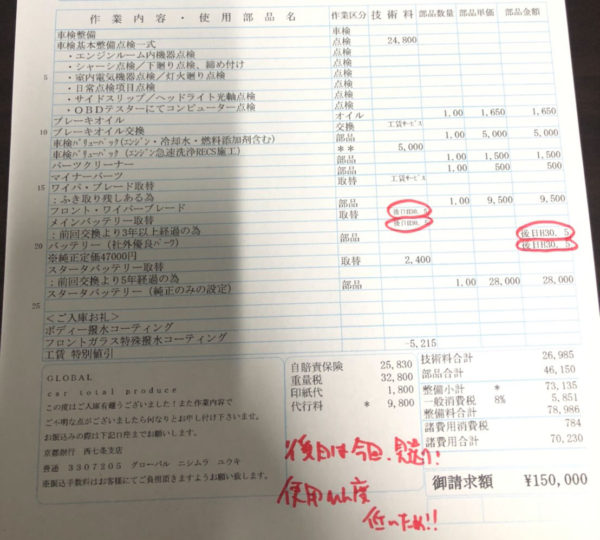 作業内容・使用部品名 作業区分 技術料 部品数量 部品単価 部品金額
車検整備 車検
車検基本整備点検一式 点検 24,800
・エンジンルーム内機器点検 点検
・シャーシ点検／下廻り点検、締め付け 点検
5 ・室内電気機器点検／灯火廻り点検 点検
・日常点検項目点検 点検
・サイドスリップ／ヘッドライト光軸点検 点検
・OBDテスターにてコンピューター点検 点検
ブレーキオイル オイル 1.00 1,650 1,650
10 ブレーキオイル交換 交換 工賃サービス
車検バリューパック（エンジン・冷却水・燃料添加剤含む） 部品 1.00 5,000 5,000
車検バリューパック（エンジン急速洗浄RECS施工） ** 5,000
パーツクリーナー 部品 1.00 1,500 1,500
マイナーパーツ 部品 1.00 500 500
15 ワイパ・ブレード取替 取替 工賃サービス
：ふき取り残しある為
フロント・ワイパーブレード 部品 1.00 9,500 9,500
メインバッテリー取替 取替 後日R30. 5
：前回交換より3年以上経過の為 後日R30. 5
20 バッテリー（社外優良パーツ） 部品 後日R30. 5
※純正定価47000円 後日R30. 5
スタータバッテリー取替 取替 2,400
：前回交換より5年経過の為
スタータバッテリー（純正のみの設定） 部品 1.00 28,000 28,000
25
＜ご入庫お礼＞
ボディー撥水コーティング
フロントガラス特殊撥水コーティング
工賃 特別値引 -5,215
GLOBAL
car total produce
この度はご入庫有難うございました！また作業内容で
ご不明な点がございましたら何なりとお申し付け下さいませ。
お振込みの際は下記口座までお願いします。
京都銀行 西七条支店
普通 3307205 グローバル ニシムラ ユウキ
※振込手数料はお客様にてご負担頂きますようお願い致します。
自賠責保険 25,830
重量税 32,800
印紙代 1,800
代行料 * 9,800
技術料合計 26,985
部品合計 46,150
整備小計 * 73,135
一般消費税 8% 5,851
整備料合計 78,986
諸費用消費税 784
諸費用合計 70,230
御請求額 ¥150,000
後日は今回、見送り！
使用れん度
低いため!!